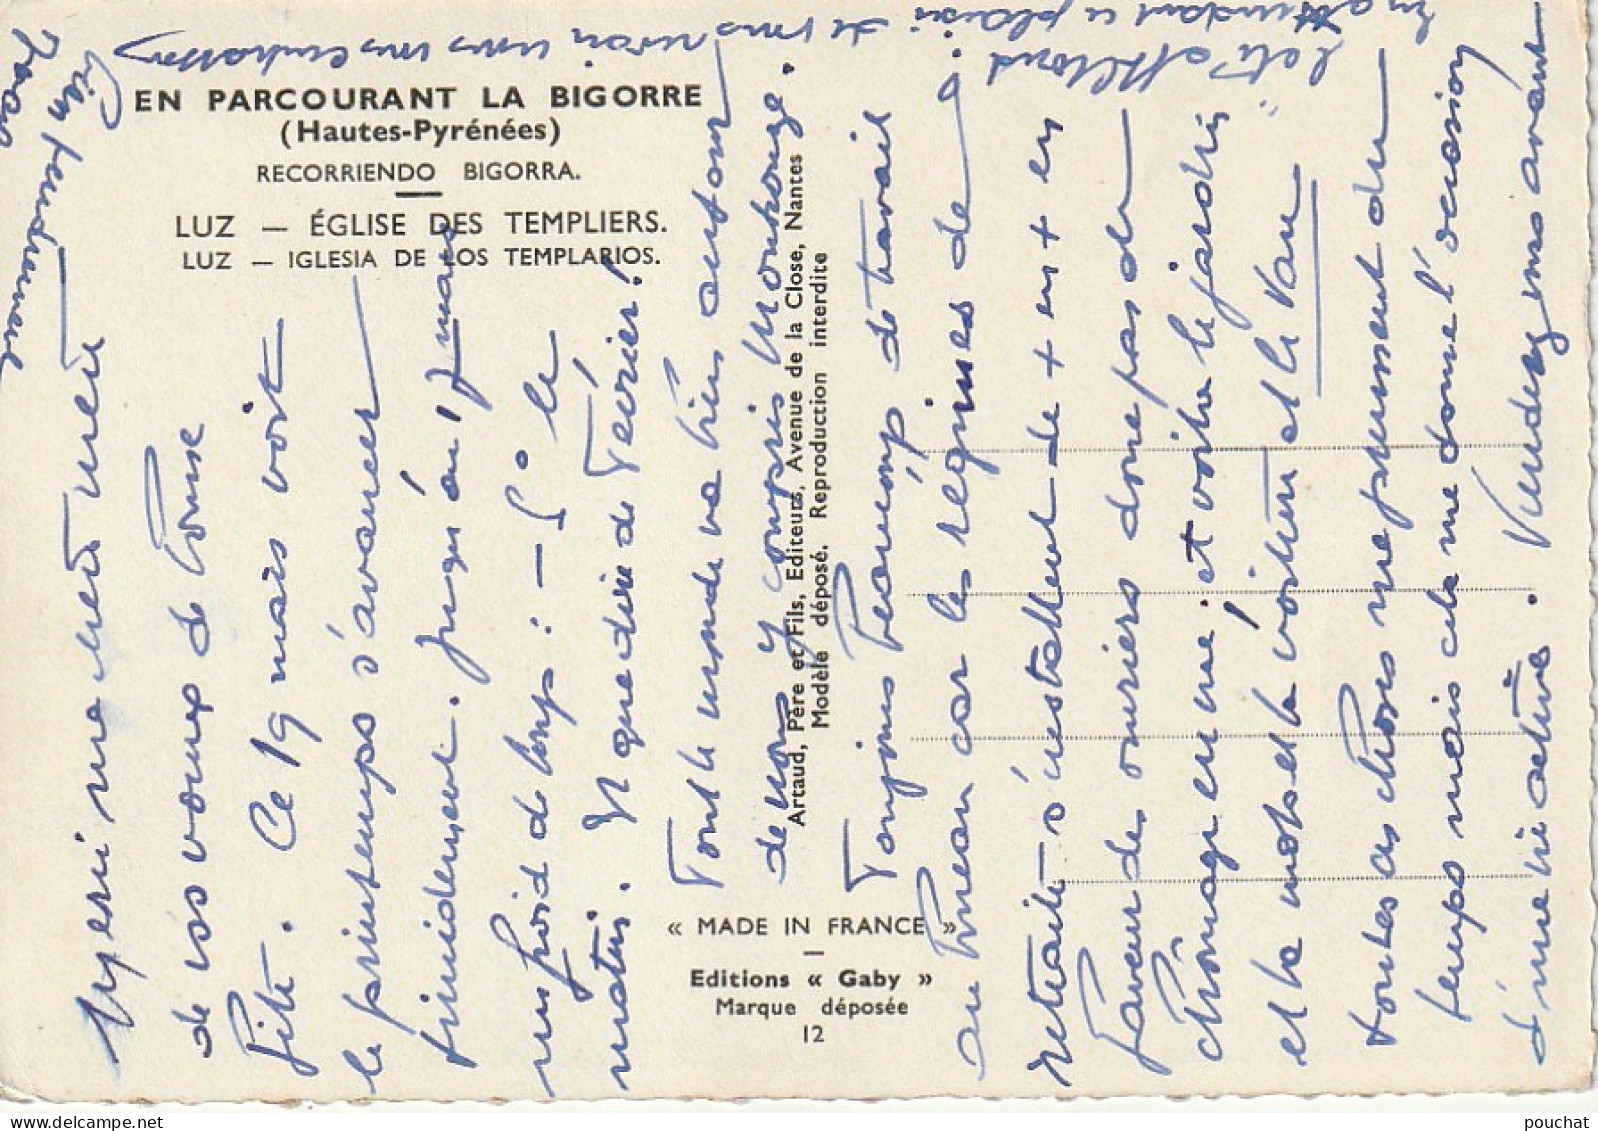 EN PARCOURANT LA BIGORRE
(Hautes-Pyrénées)
RECORRIENDO BIGORRA.
LUZ — ÉGLISE DES TEMPLIERS.
LUZ — IGLESIA DE LOS TEMPLARIOS.
Artaud, Père et Fils, Editeurs, Avenue de la Close, Nantes
Modèle déposé. Reproduction interdite
« MADE IN FRANCE »
Editions « Gaby »
Marque déposée
12
de vos vœux de bonne
fête. Ce 19 mars voit
le printemps s'avancer
timidement. Jusqu'au 1 mars
un froid de loup : – 5° le
matin. Et que dire de Février !
Tout le monde va bien autour
de nous y compris Monhonge.
Toujours beaucoup de travail
au bureau car les régimes de
retraite s'installent de + en + en
faveur des ouriers donc pas de
chômage en vue. et voilà le jardin
et la moto et la voiture et le Van
toutes ces choses me prennent du
temps mais cela me donne l'occasion
d'une vie active. Viendez nous avant
l'été Attend
En attendant ce plaisir de vous revoir nous vous embrassons
bien tendrement